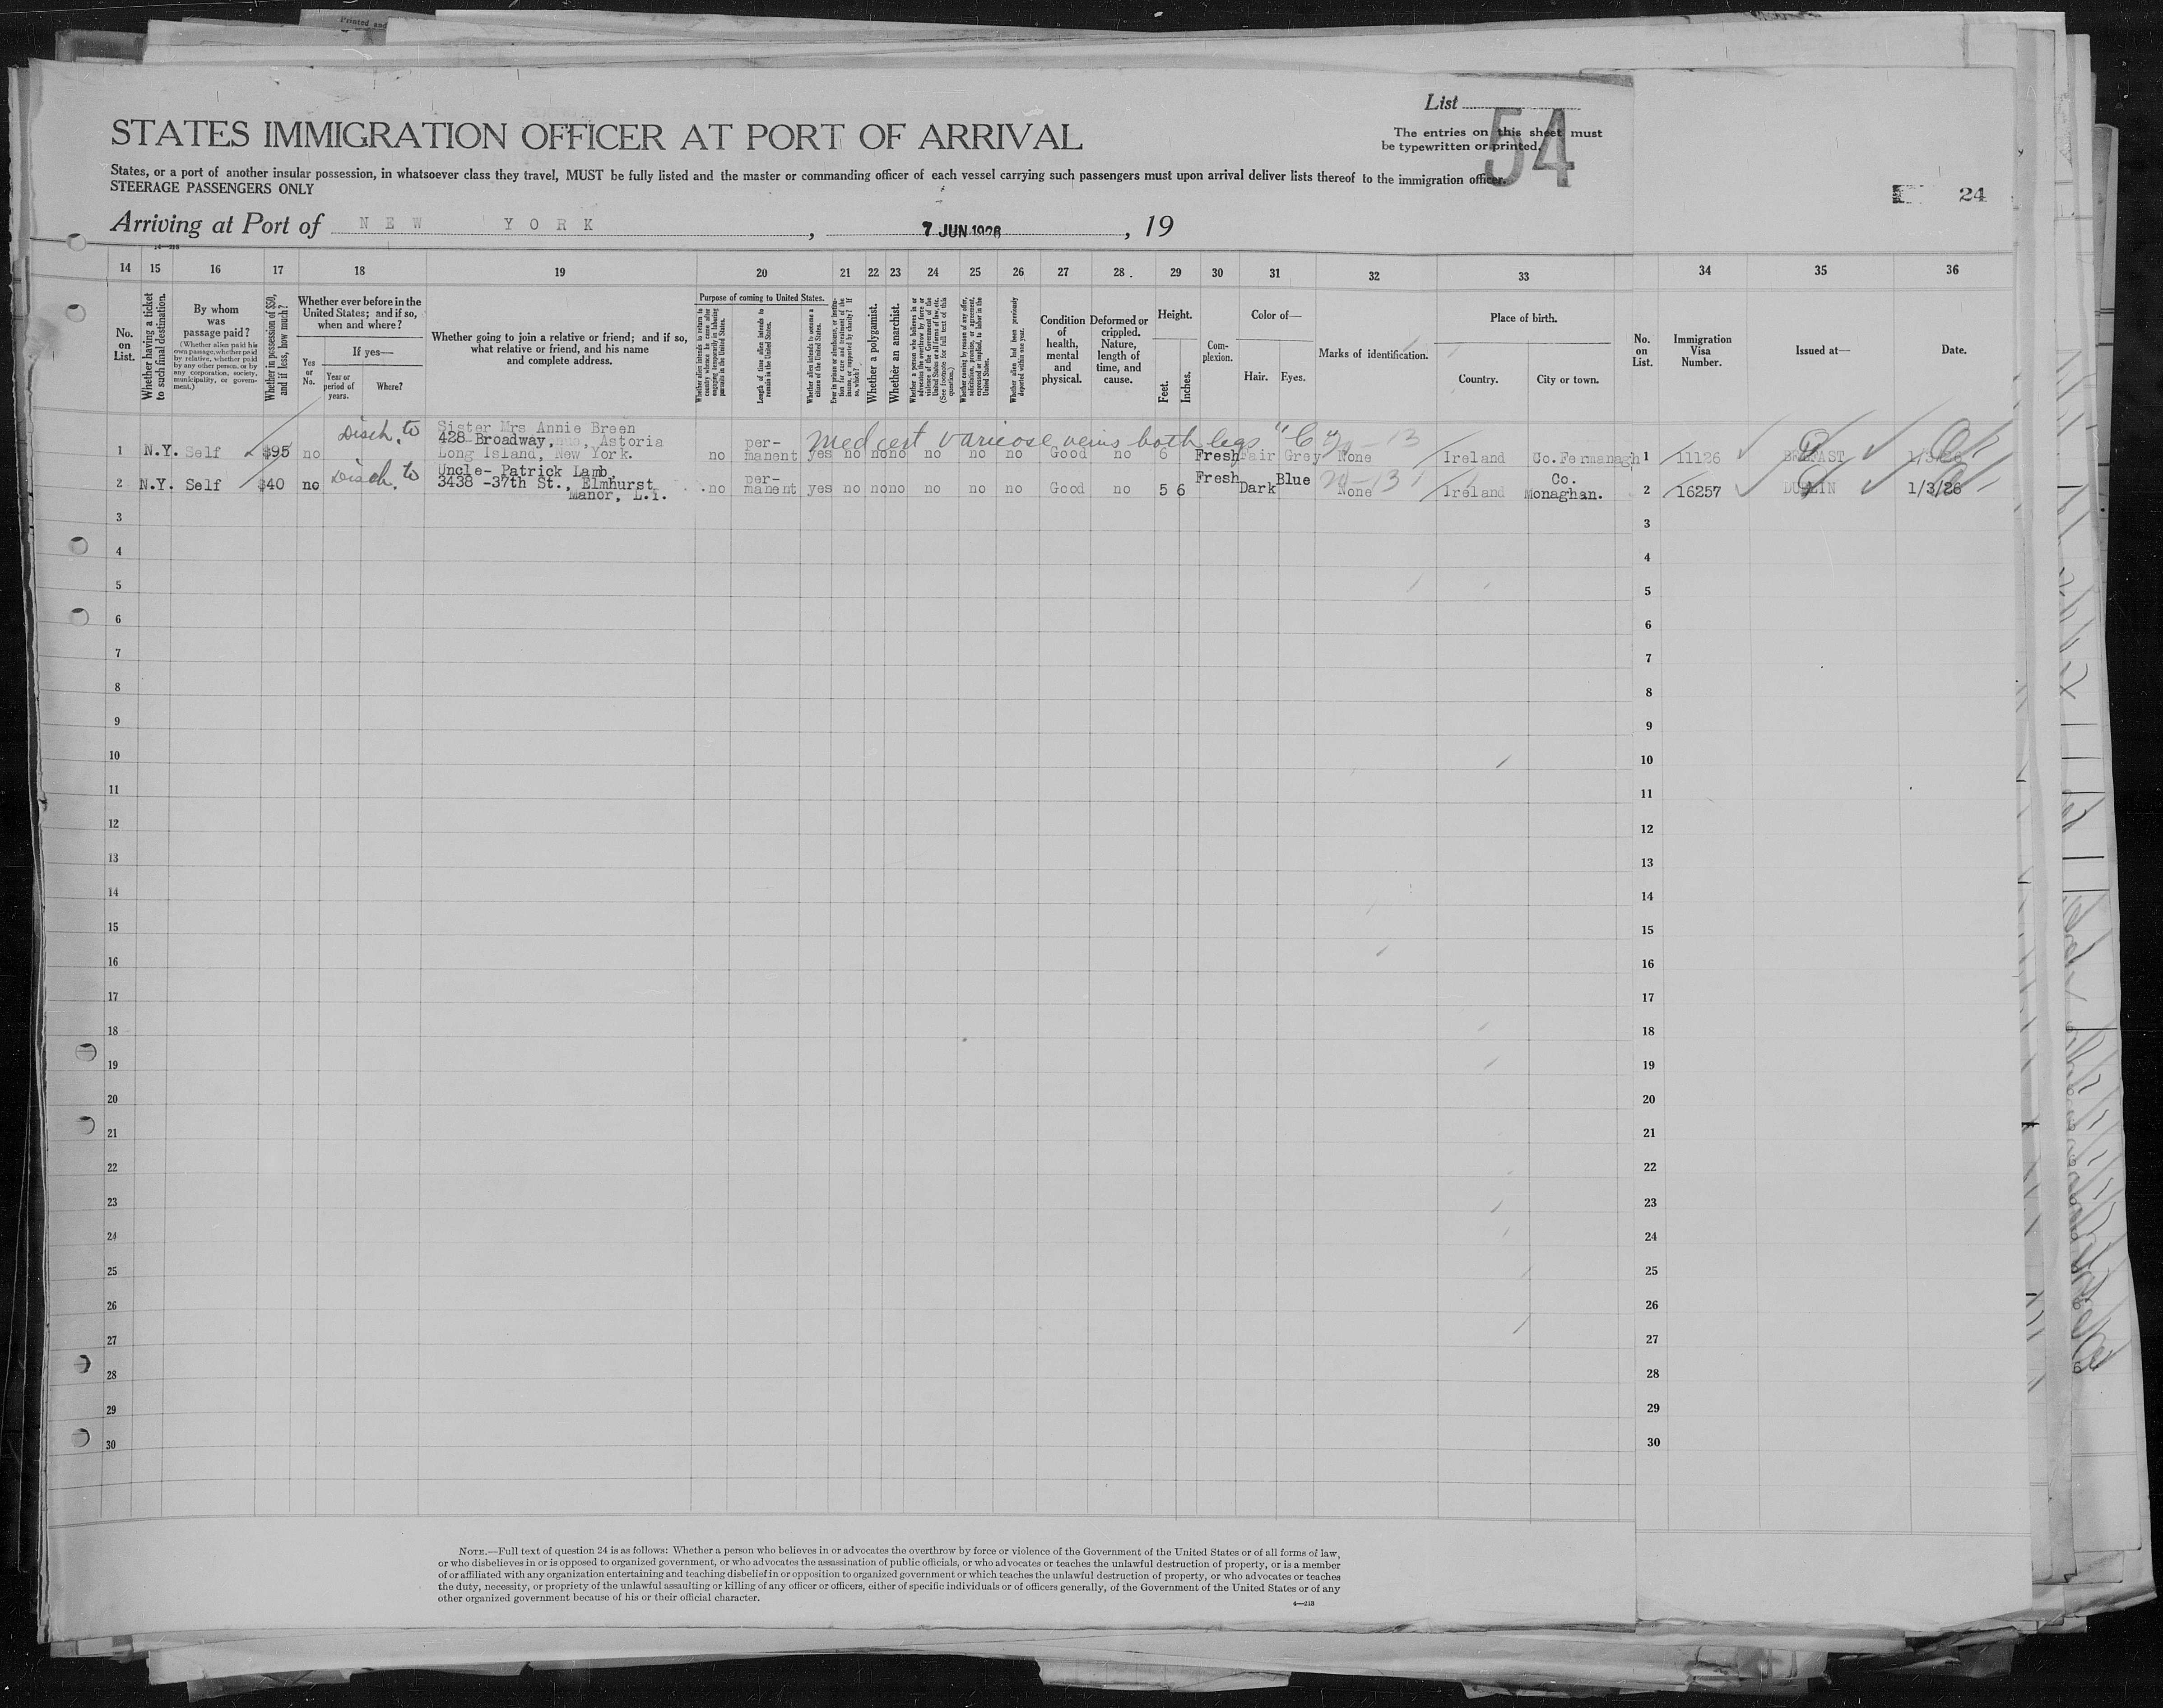 Printed and
List
54
The entries on this sheet must
be typewritten or printed.
STATES IMMIGRATION OFFICER AT PORT OF ARRIVAL
States, or a port of another insular possession, in whatsoever class they travel, MUST be fully listed and the master or commanding officer of each vessel carrying such passengers must upon arrival deliver lists thereof to the immigration officer.
STEERAGE PASSENGERS ONLY
24
Arriving at Port of NEW YORK, 7 JUN 1926, 19
14 15 16 17 18 19 20 21 22 23 24 25 26 27 28 29 30 31 32 33 34 35 36
No. on List.
Whether having a ticket to such final destination.
By whom was passage paid?
(Whether alien paid his own passage, whether paid by relative, whether paid by any other person, or by any corporation, society, municipality, or government.)
Whether in possession of $50, and if less, how much?
Whether ever before in the United States; and if so, when and where?
Yes or No.
If yes—
Year or period of years.
Where?
Whether going to join a relative or friend; and if so, what relative or friend, and his name and complete address.
Purpose of coming to United States.
Whether alien intends to return to country whence he came after engaging temporarily in laboring pursuits in the United States.
Length of time alien intends to remain in the United States.
Whether alien intends to become a citizen of the United States.
Ever in prison or almshouse, or institution for care and treatment of the insane, or supported by charity? If so, which?
Whether a polygamist.
Whether an anarchist.
Whether a person who believes in or advocates the overthrow by force or violence of the Government of the United States or all forms of law, etc. (See footnote for full text of this question.)
Whether coming by reason of any offer, solicitation, promise, or agreement, expressed or implied, to labor in the United States.
Whether alien had been previously deported within one year.
Condition of health, mental and physical.
Deformed or crippled. Nature, length of time, and cause.
Height.
Feet. Inches.
Complexion.
Color of—
Hair. Eyes.
Marks of identification.
Place of birth.
Country. City or town.
No. on List.
Immigration Visa Number.
Issued at—
Date.
Disch. to Sister Mrs Annie Breen
428 Broadway, Astoria
Long Island, New York.
med cert varicose veins both legs "C"
1 N.Y. Self $95 no no permanent yes no no no no no no Good no 6 Fresh Fair Grey None Ireland Co.Fermanagh 1 11126 BELFAST 1/3/26
Disch. to Uncle- Patrick Lamb,
3438 -37th St., Elmhurst
Manor, L.I.
2 N.Y. Self $40 no no permanent yes no no no no no no Good no 5 6 Fresh Dark Blue None Ireland Co. Monaghan. 2 16257 DUBLIN 1/3/26
3 3
4 4
5 5
6 6
7 7
8 8
9 9
10 10
11 11
12 12
13 13
14 14
15 15
16 16
17 17
18 18
19 19
20 20
21 21
22 22
23 23
24 24
25 25
26 26
27 27
28 28
29 29
30 30
NOTE.—Full text of question 24 is as follows: Whether a person who believes in or advocates the overthrow by force or violence of the Government of the United States or of all forms of law,
or who disbelieves in or is opposed to organized government, or who advocates the assassination of public officials, or who advocates or teaches the unlawful destruction of property, or is a member
of or affiliated with any organization entertaining and teaching disbelief in or opposition to organized government or which teaches the unlawful destruction of property, or who advocates or teaches
the duty, necessity, or propriety of the unlawful assaulting or killing of any officer or officers, either of specific individuals or of officers generally, of the Government of the United States or of any
other organized government because of his or their official character.
4—213